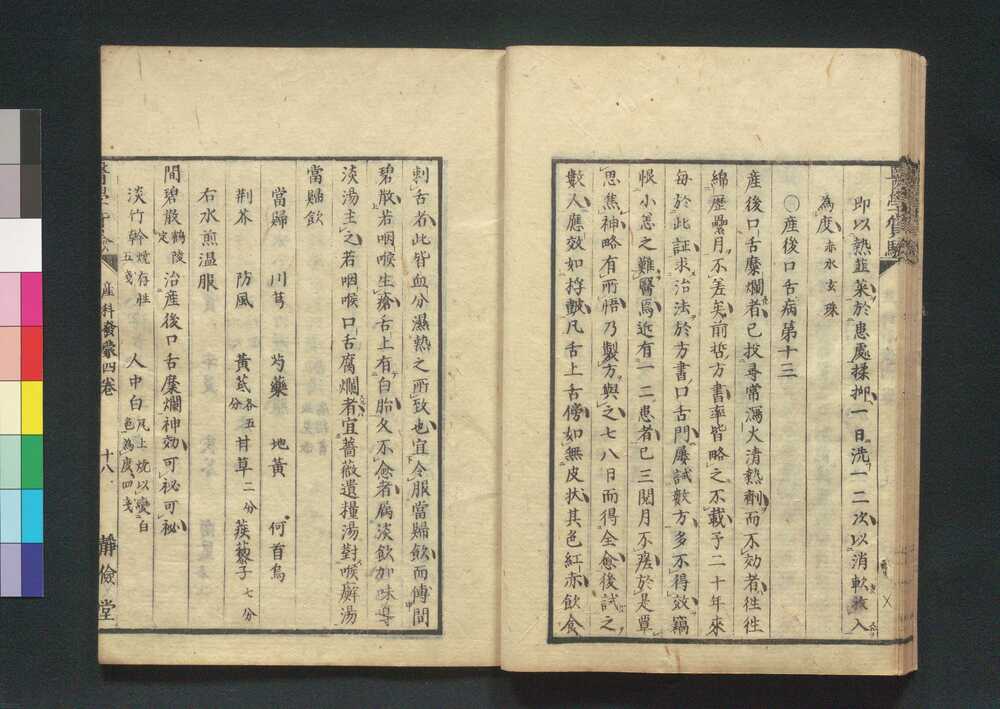 即以熱韮菜於患處揉抑一日洗一二次以消軟放入
為度 赤水玄珠
○産後口舌病第十三
産後口舌糜爛者已投尋常瀉火清熱劑而不効者徃徃
綿歴疊月不差矣前哲方書率皆略之不載予二十年來
每於此証求治法於方書口舌門屢試數方多不得效竊
恨小恙之難醫焉近有一二患者已三閱月不瘥於是覃
思焦神略有所悟乃製方與之七八日而得全愈後試之
數人應效如桴皷凡舌上舌傍如無皮狀其色紅赤飲食
刺舌者此皆血分濕熱之所致也宜令服當歸飲而傳間
碧散若咽喉生瘡舌上有白胎久不愈者屬淡飲加味導
淡湯主之若咽喉口舌腐爛者宜薔薇遺糧湯對喉癬湯
當歸飲
當歸 川芎 芍藥 地黃 何首烏
荆芥 防風 黃芪 各五分 甘草 二分 蒺藜子 七分
右水煎溫服
間碧散 鶴陵定 治産後口舌糜爛神効可秘可秘
淡竹幹 燒存性五戔 人中白 瓦上煅以變白色為度四戔
産科發蒙四卷 十八 靜儉堂